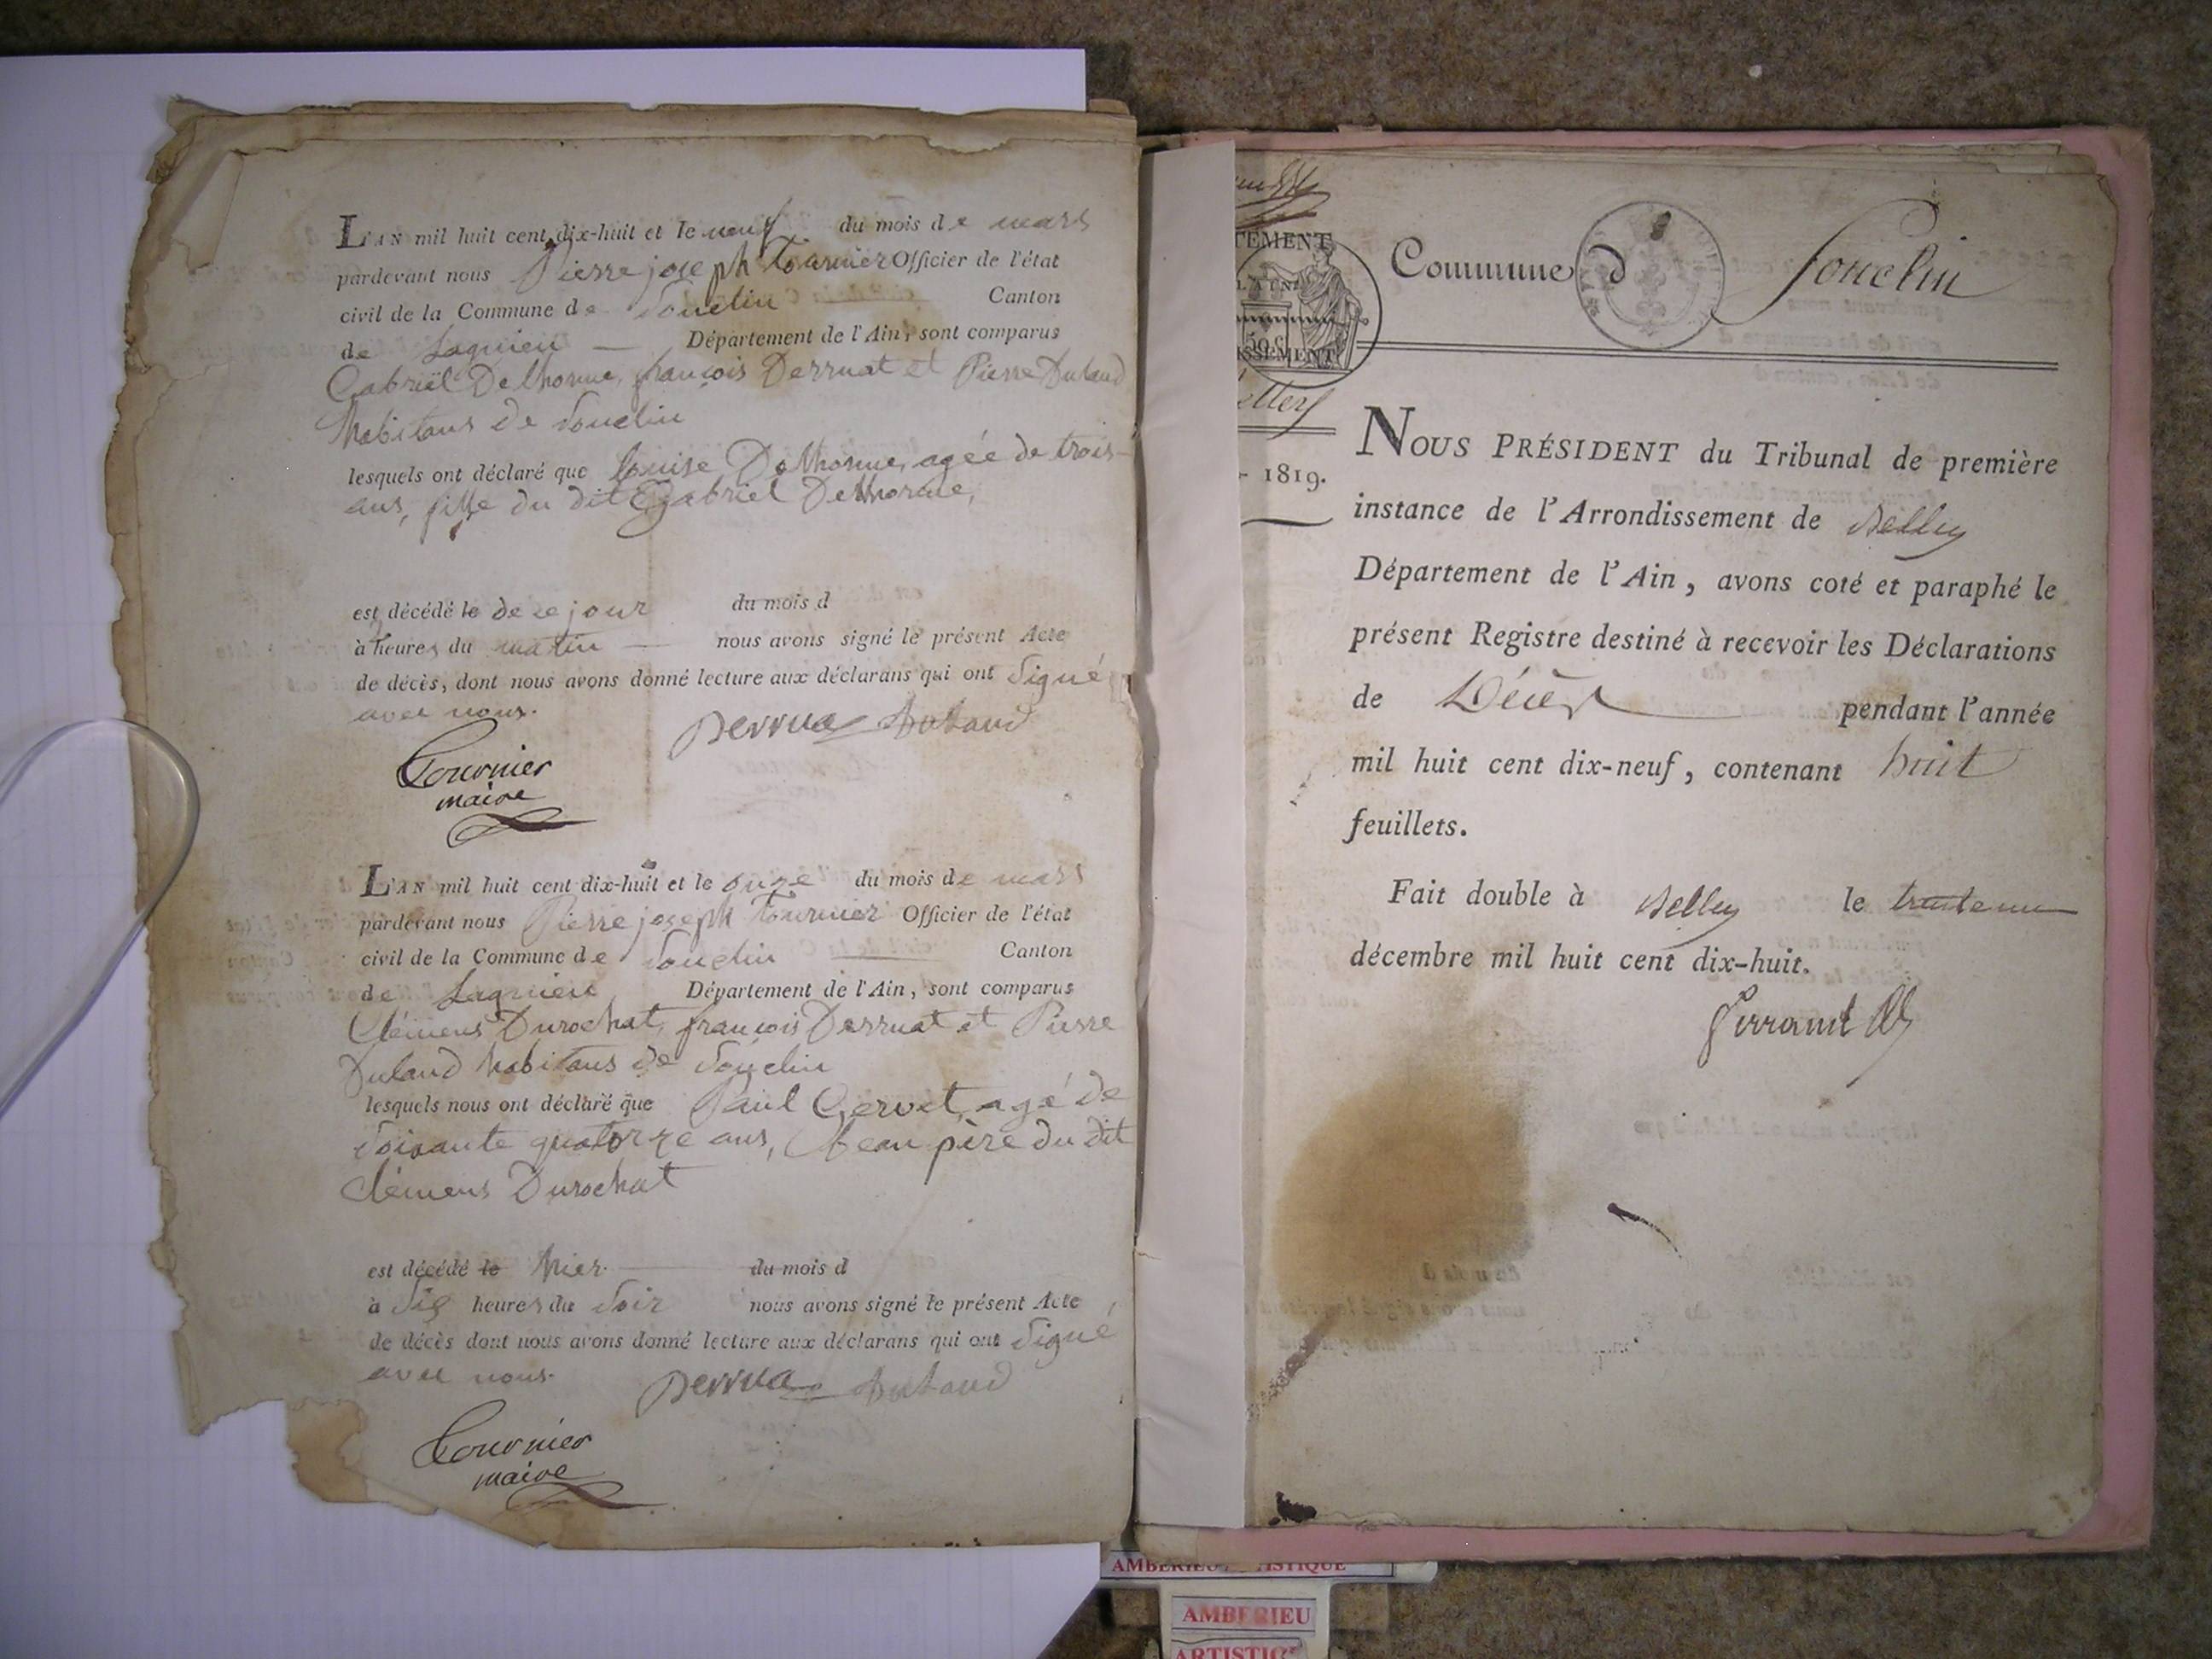 L'AN mil huit cent dix-huit et le neuf du mois de mars
pardevant nous Pierre joseph Tournier Officier de l'état
civil de la Commune de Souclin Canton
de Lagnieu Département de l'Ain, sont comparus
Gabriël Delhorme, françois Derruat et Pierre Duland
habitans de Souclin
lesquels ont déclaré que louise Delhorme, agée de trois
ans, fille du dit Gabriel Delhorme,
est décédé le de ce jour du mois d
à heures du matin nous avons signé le présent Acte
de décès, dont nous avons donné lecture aux déclarans qui ont signé
avec nous.
Derrua Duland
Tournier
maire
L'AN mil huit cent dix-huit et le onze du mois de mars
pardevant nous Pierre joseph Tournier Officier de l'état
civil de la Commune de Souclin Canton
de Lagnieu Département de l'Ain, sont comparus
Clémens Durochat, françois Derruat et Pierre
Duland habitans de Souclin
lesquels nous ont déclaré que Paul Gervet, agé de
soixante quatorze ans, beau père du dit
Clémens Durochat
est décédé le hier du mois d
à six heures du soir nous avons signé le présent Acte
de décès dont nous avons donné lecture aux déclarans qui ont signé
avec nous.
Derrua Duland
Tournier
maire
TEMENT
50 c
SSEMENT
- 1819.
Commune d Souclin
NOUS PRÉSIDENT du Tribunal de première
instance de l'Arrondissement de Belley
Département de l'Ain, avons coté et paraphé le
présent Registre destiné à recevoir les Déclarations
de Décès pendant l'année
mil huit cent dix-neuf, contenant huit
feuillets.
Fait double à Belley le trente un
décembre mil huit cent dix-huit.
AMBERIEU ARTISTIQUE
AMBERIEU
ARTISTIQ